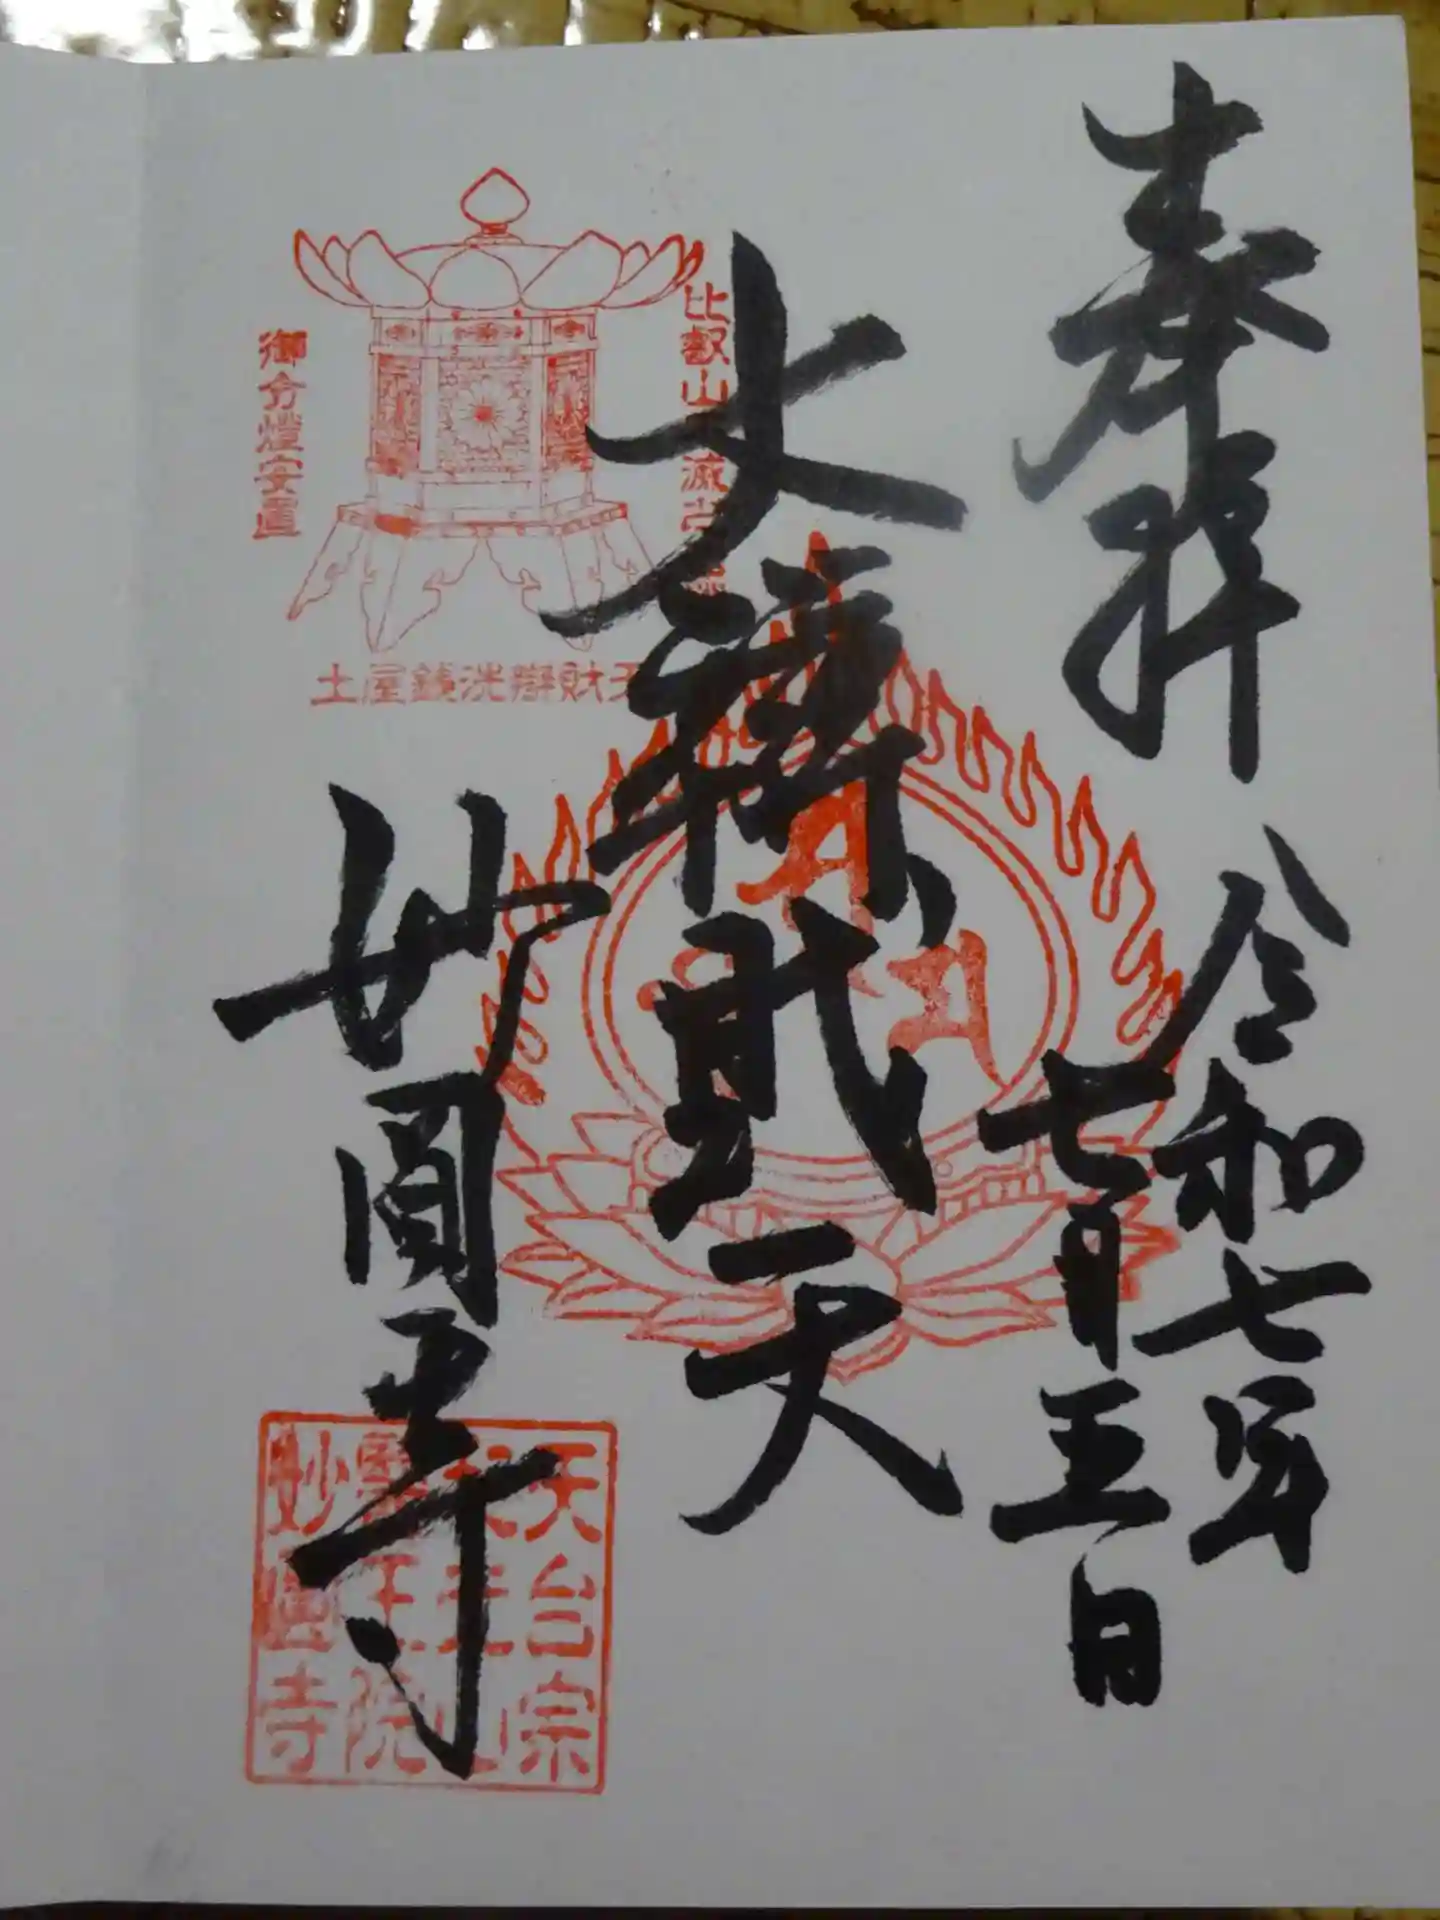 奉拝
令和七年
七月五日
大辯財天
妙圓寺
比叡山
御分燈安置
土屋錢洗辯財天
天台宗
妙圓寺